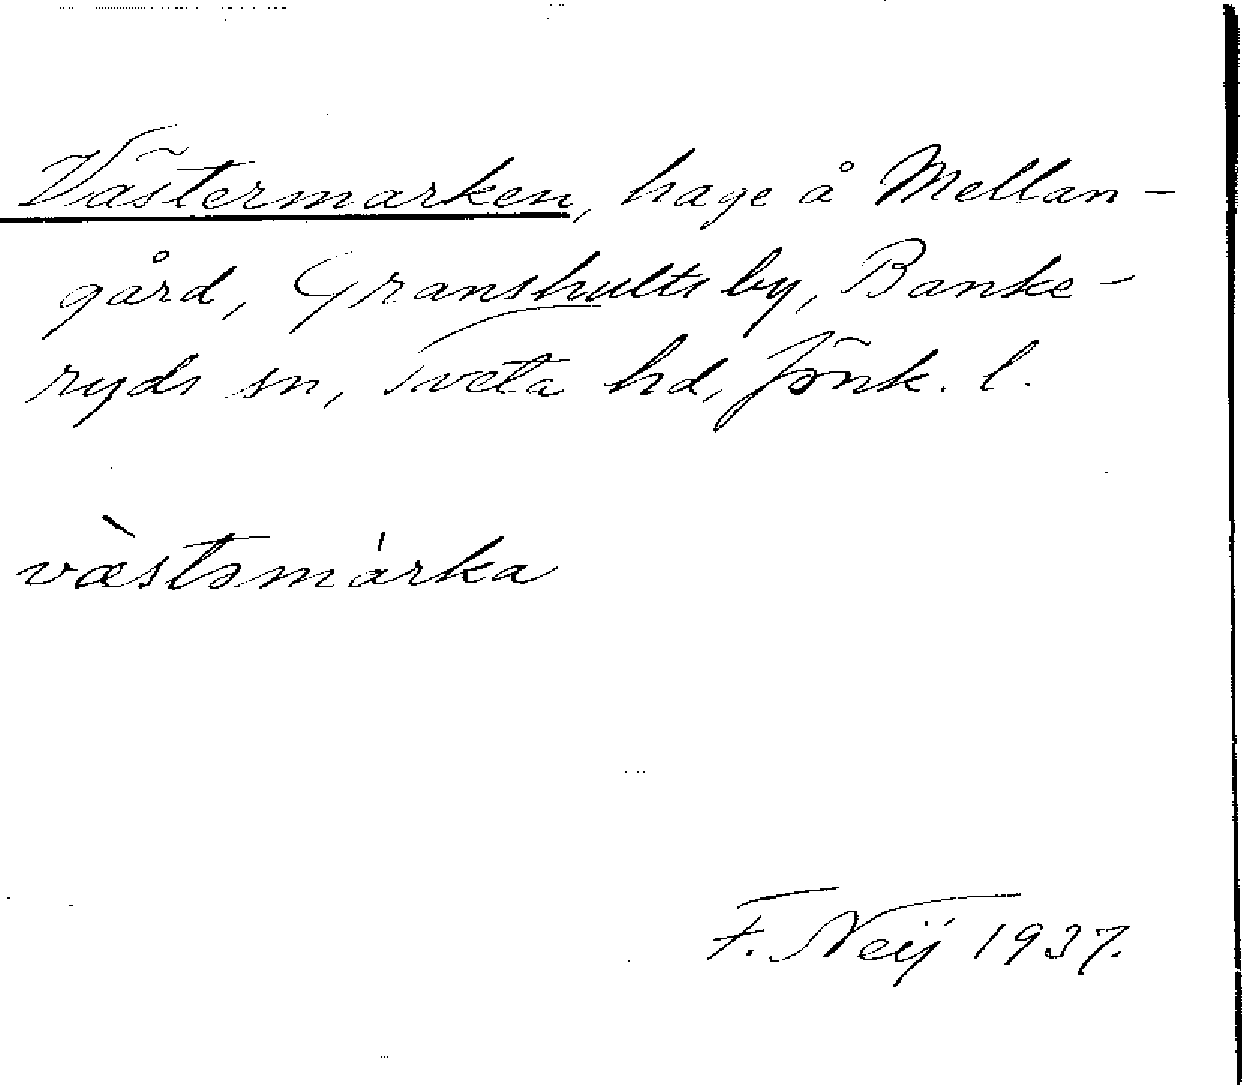 Västermarken, hage å Mellan-
gård, Granshults by, Banke-
ryds sn, Tveta hd, Jönk. l.
væ̀stəmárka
F. Neij 1937.